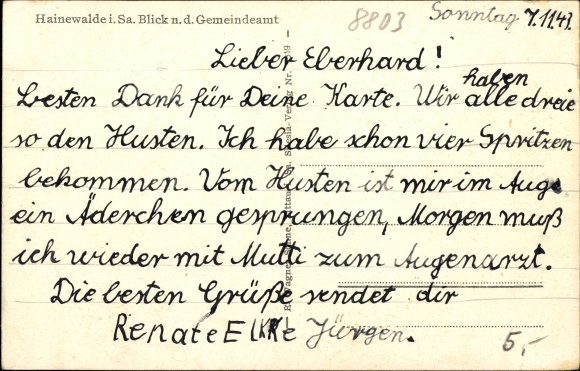 Hainewalde i. Sa. Blick n. d. Gemeindeamt
8803
Sonntag 7.11.41.
Lieber Eberhard!
haben
Besten Dank für Deine Karte. Wir alle dreie
so den Husten. Ich habe schon vier Spritzen
bekommen. Vom Husten ist mir im Auge
ein Äderchen gesprungen, Morgen muß
ich wieder mit Mutti zum Augenarzt.
Die besten Grüße sendet dir
Renate Elke Jürgen.
5,-